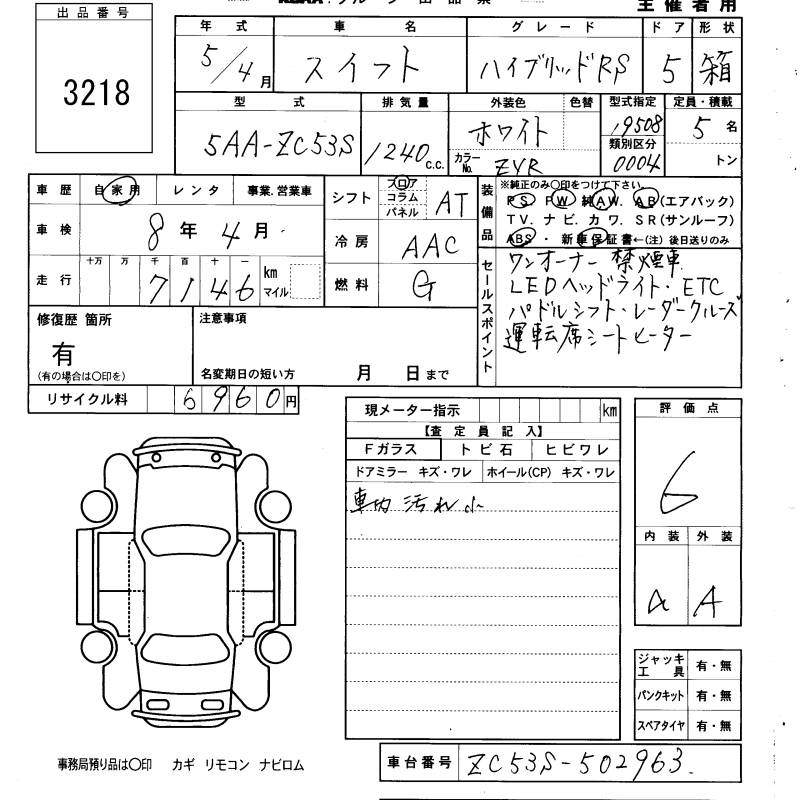 主催者用
出品番号
3218
年式 車名 グレード ドア 形状
5/4月 スイフト ハイブリッドRS 5 箱
型式 排気量 外装色 色替 型式指定 定員・積載
5AA-ZC53S 1240c.c. ホワイト 19508 5名
カラーNo. ZVR 類別区分 0004 トン
車歴 自家用 レンタ 事業.営業車
車検 8年4月
走行 十万 万 千 百 十 一
7146 km マイル
シフト フロア コラム パネル AT
冷房 AAC
燃料 G
装備品
※純正のみ○印をつけて下さい。
PS PW 純AW. AB(エアバック)
TV. ナビ. カワ. SR(サンルーフ)
ABS ・ 新車保証書←(注) 後日送りのみ
セールスポイント
ワンオーナー 禁煙車
LEDヘッドライト・ETC
パドルシフト・レーダークルーズ
運転席シートヒーター
修復歴 箇所
有
(有の場合は○印を)
注意事項
名変期日の短い方 月 日まで
リサイクル料 6960円
現メーター指示 km
【査定員記入】
Fガラス トビ石 ヒビワレ
ドアミラー キズ・ワレ ホイール(CP) キズ・ワレ
車内汚れ小
評価点
6
内装 外装
a A
ジャッキ工具 有・無
パンクキット 有・無
スペアタイヤ 有・無
事務局預り品は○印 カギ リモコン ナビロム
車台番号 ZC53S-502963